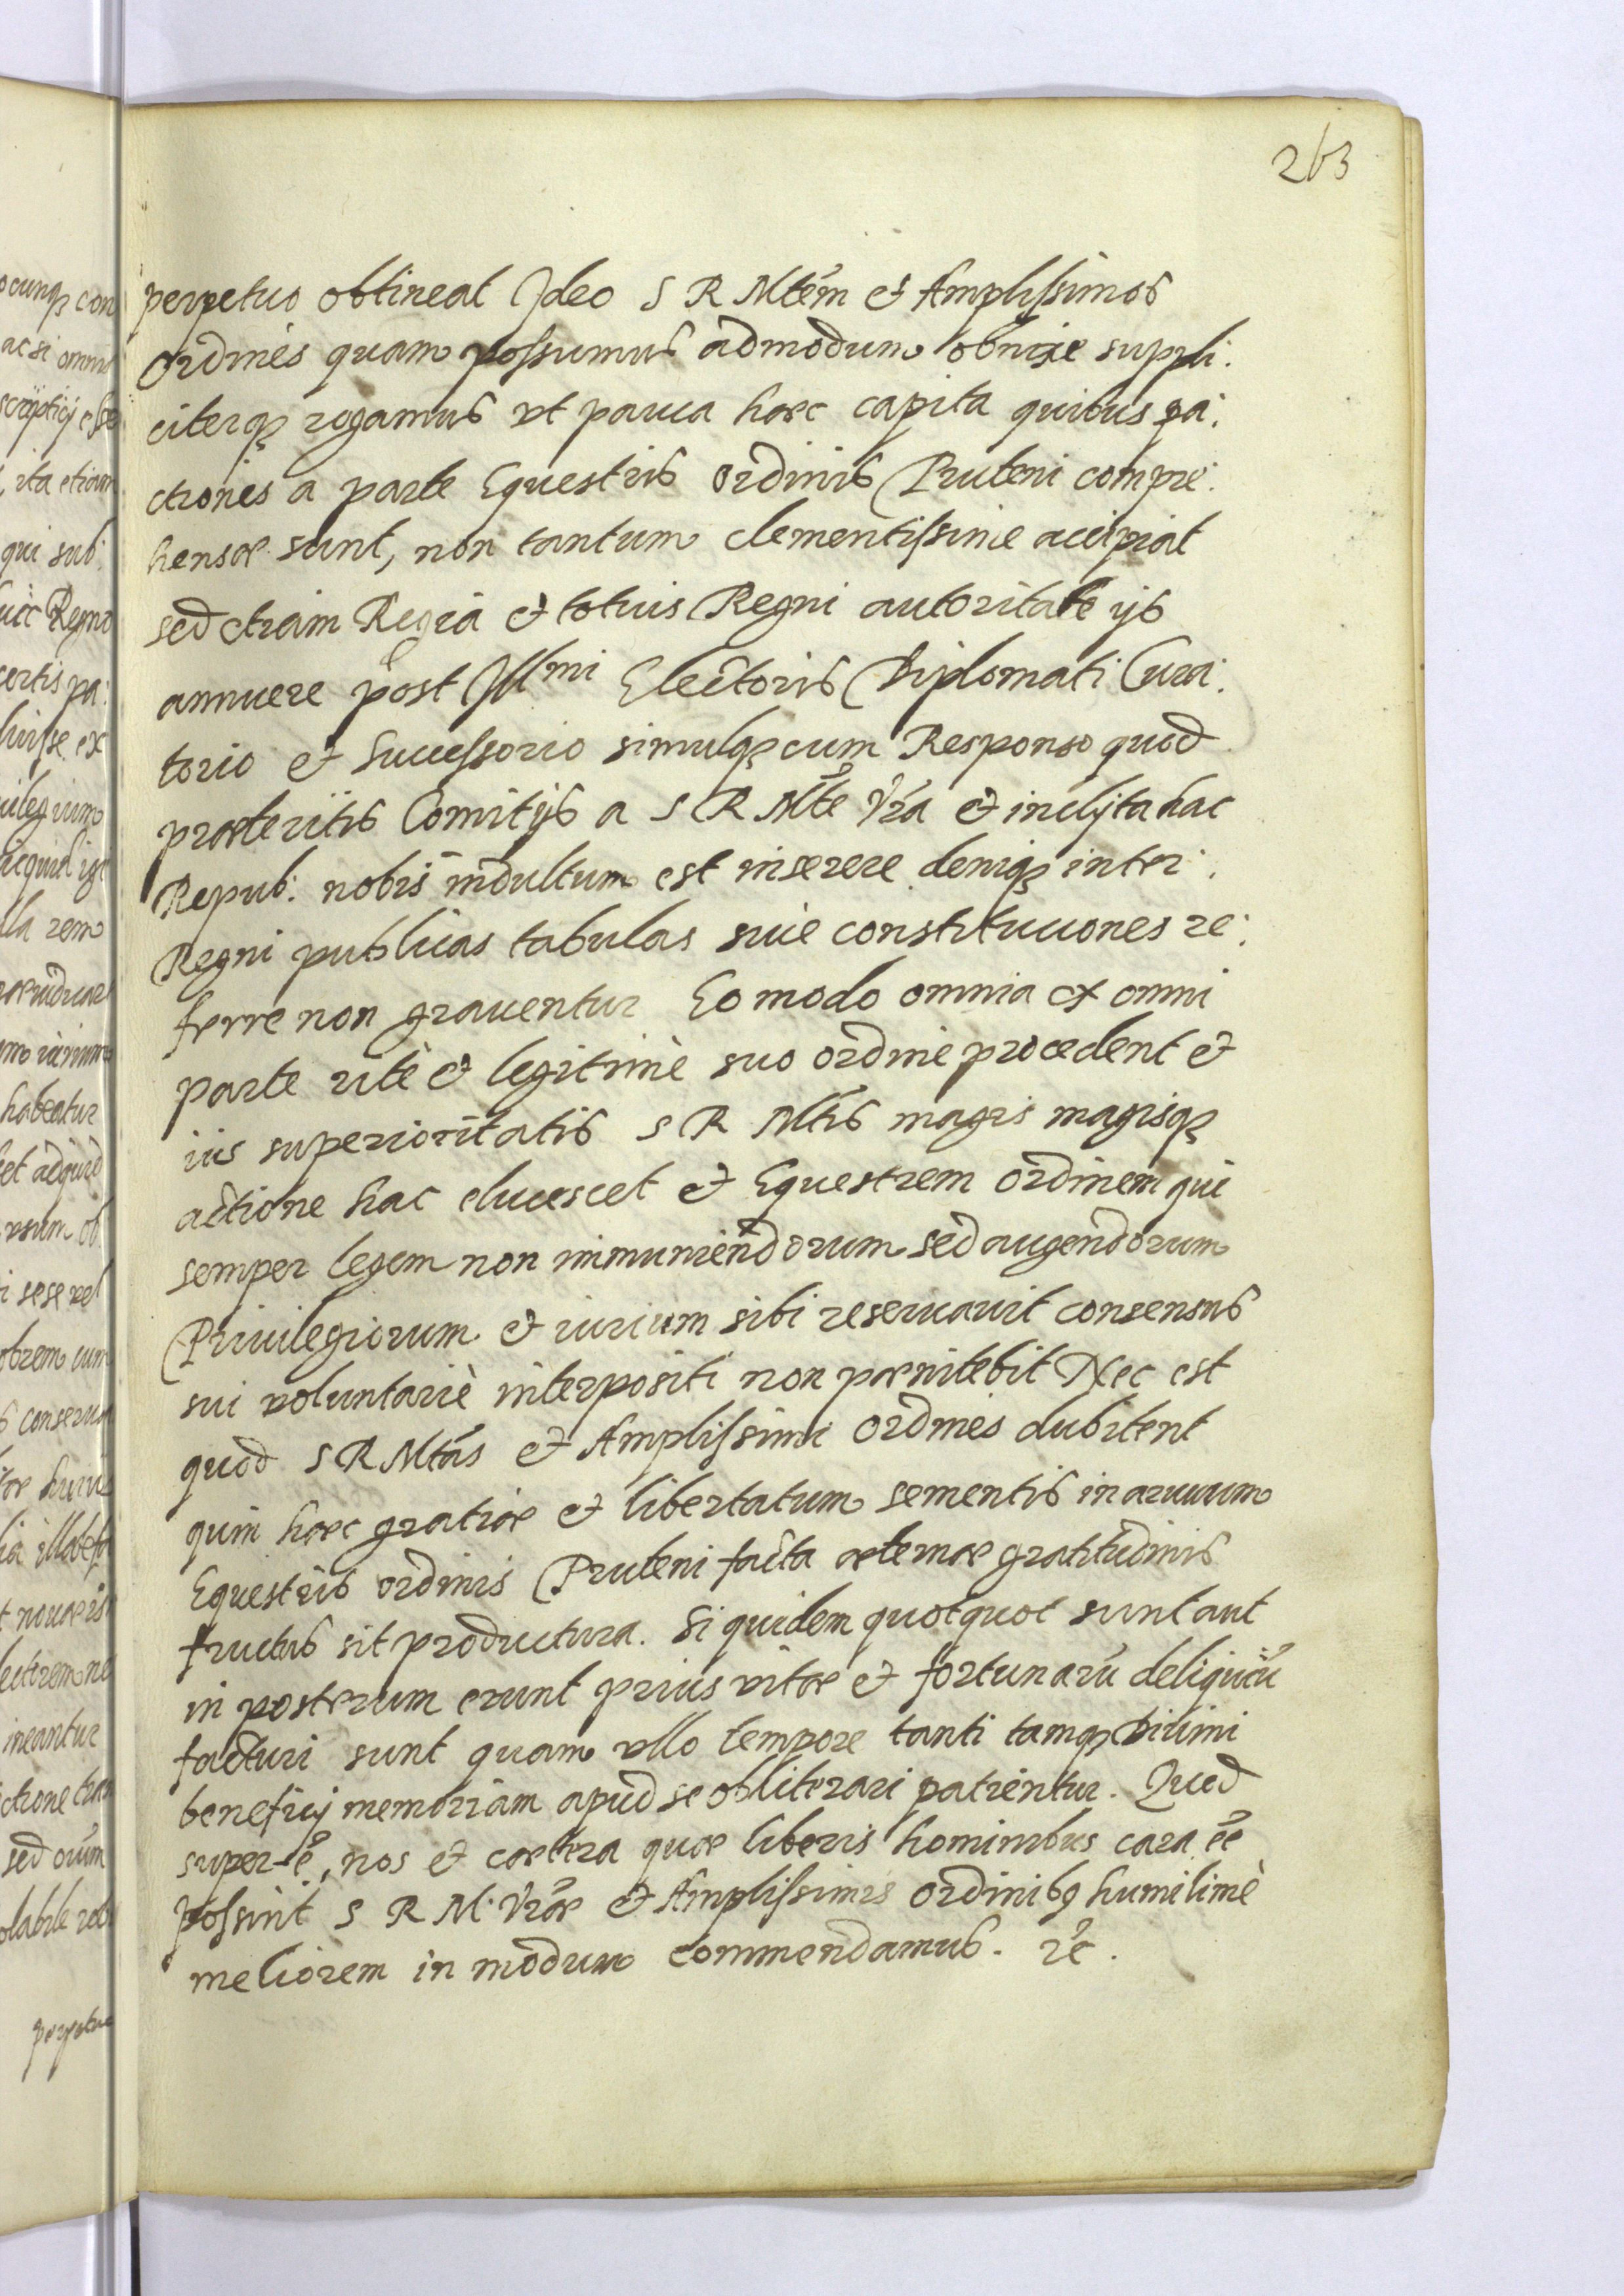 263
perpetuo obtineat Ideo S R Mtem & Amplissimos
Ordines quam possumus admodum obnixe suppli:
citerq; rogamus vt pauca haec capita quibus pa:
ctiones a parte Equestris Ordinis Pruteni compre:
hensae sunt, non tantum clementissime accipiat
sed etiam Regia & totius Regni autoritate ijs
annuere post Illmi Electoris Diplomati Cura:
torio & Successorio simulq; cum Responso quod
praeteritis Comitijs a S R Mte Vra & inclyta hac
Repub: nobis indultum est inserere deniq; inter:
Regni publicas tabulas siue constitutiones re:
ferre non grauentur Eo modo omnia ex omni
parte rite & legitimè suo ordine procedent &
ius superioritatis S R Mtis magis magisq;
actione hac elucescet & Equestrem Ordinem qui
semper legem non imminuendorum sed augendorum
Priuilegiorum & iurium sibi reseruauit consensus
sui voluntariè interpositi non paenitebit Nec est
quod S R Mtas & Amplissimi Ordines dubitent
quin haec gratiae & libertatum sementis in aruum
Equestris ordinis Pruteni facta aeternae gratitudinis
fructus sit productura. Si quidem quotquot sunt aut
in posterum erunt prius vitae & fortunarũ deliquiũ
facturi sunt quam vllo tempore tanti tamq; diuini
beneficij memoriam apud se oblliterari patientur. Quod
super ẽ, nos & caetera quae liberis hominibus cara ẽe
possint S R M. Vrae & Amplissimis Ordinibq humilimè
meliorem in modum commendamus. rẽ.
ocunq; con
ac si omni
scripticij esse
, ita etiam
qui sub:
Regno
certis pa:
ilegium
lla rem
habeatur
et adquid
vsum ob
i sese vel
obrem cum
s conserua
huius
ineantur
ctione tran
sed
perpetuo